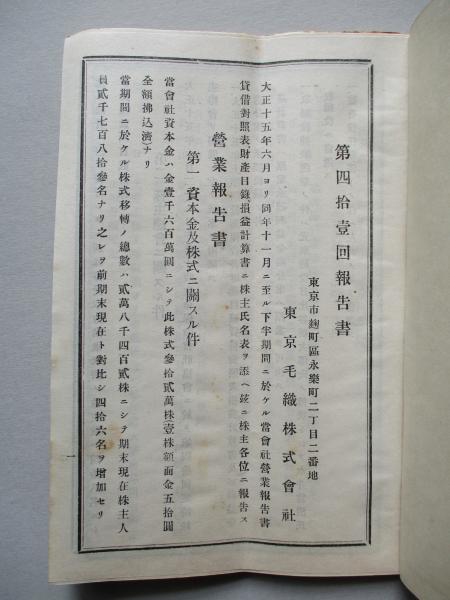 第四拾壹回報告書
東京市麴町區永樂町二丁目二番地
東京毛織株式會社
大正十五年六月ヨリ同年十一月ニ至ル下半期間ニ於ケル當會社營業報告書
貸借對照表財產目錄損益計算書ニ株主氏名表ヲ添ヘ玆ニ株主各位ニ報告ス
營業報告書
第一 資本金及株式ニ關スル件
當會社資本金ハ金壹千六百萬圓ニシテ此株式參拾貳萬株(壹株額面金五拾圓
全額拂込濟)ナリ
當期間ニ於ケル株式移轉ノ總數ハ貳萬八千四百貳株ニシテ期末現在株主人
員貳千七百八拾參名ナリ之レヲ前期末現在ト對比シ四拾六名ヲ增加セリ
一